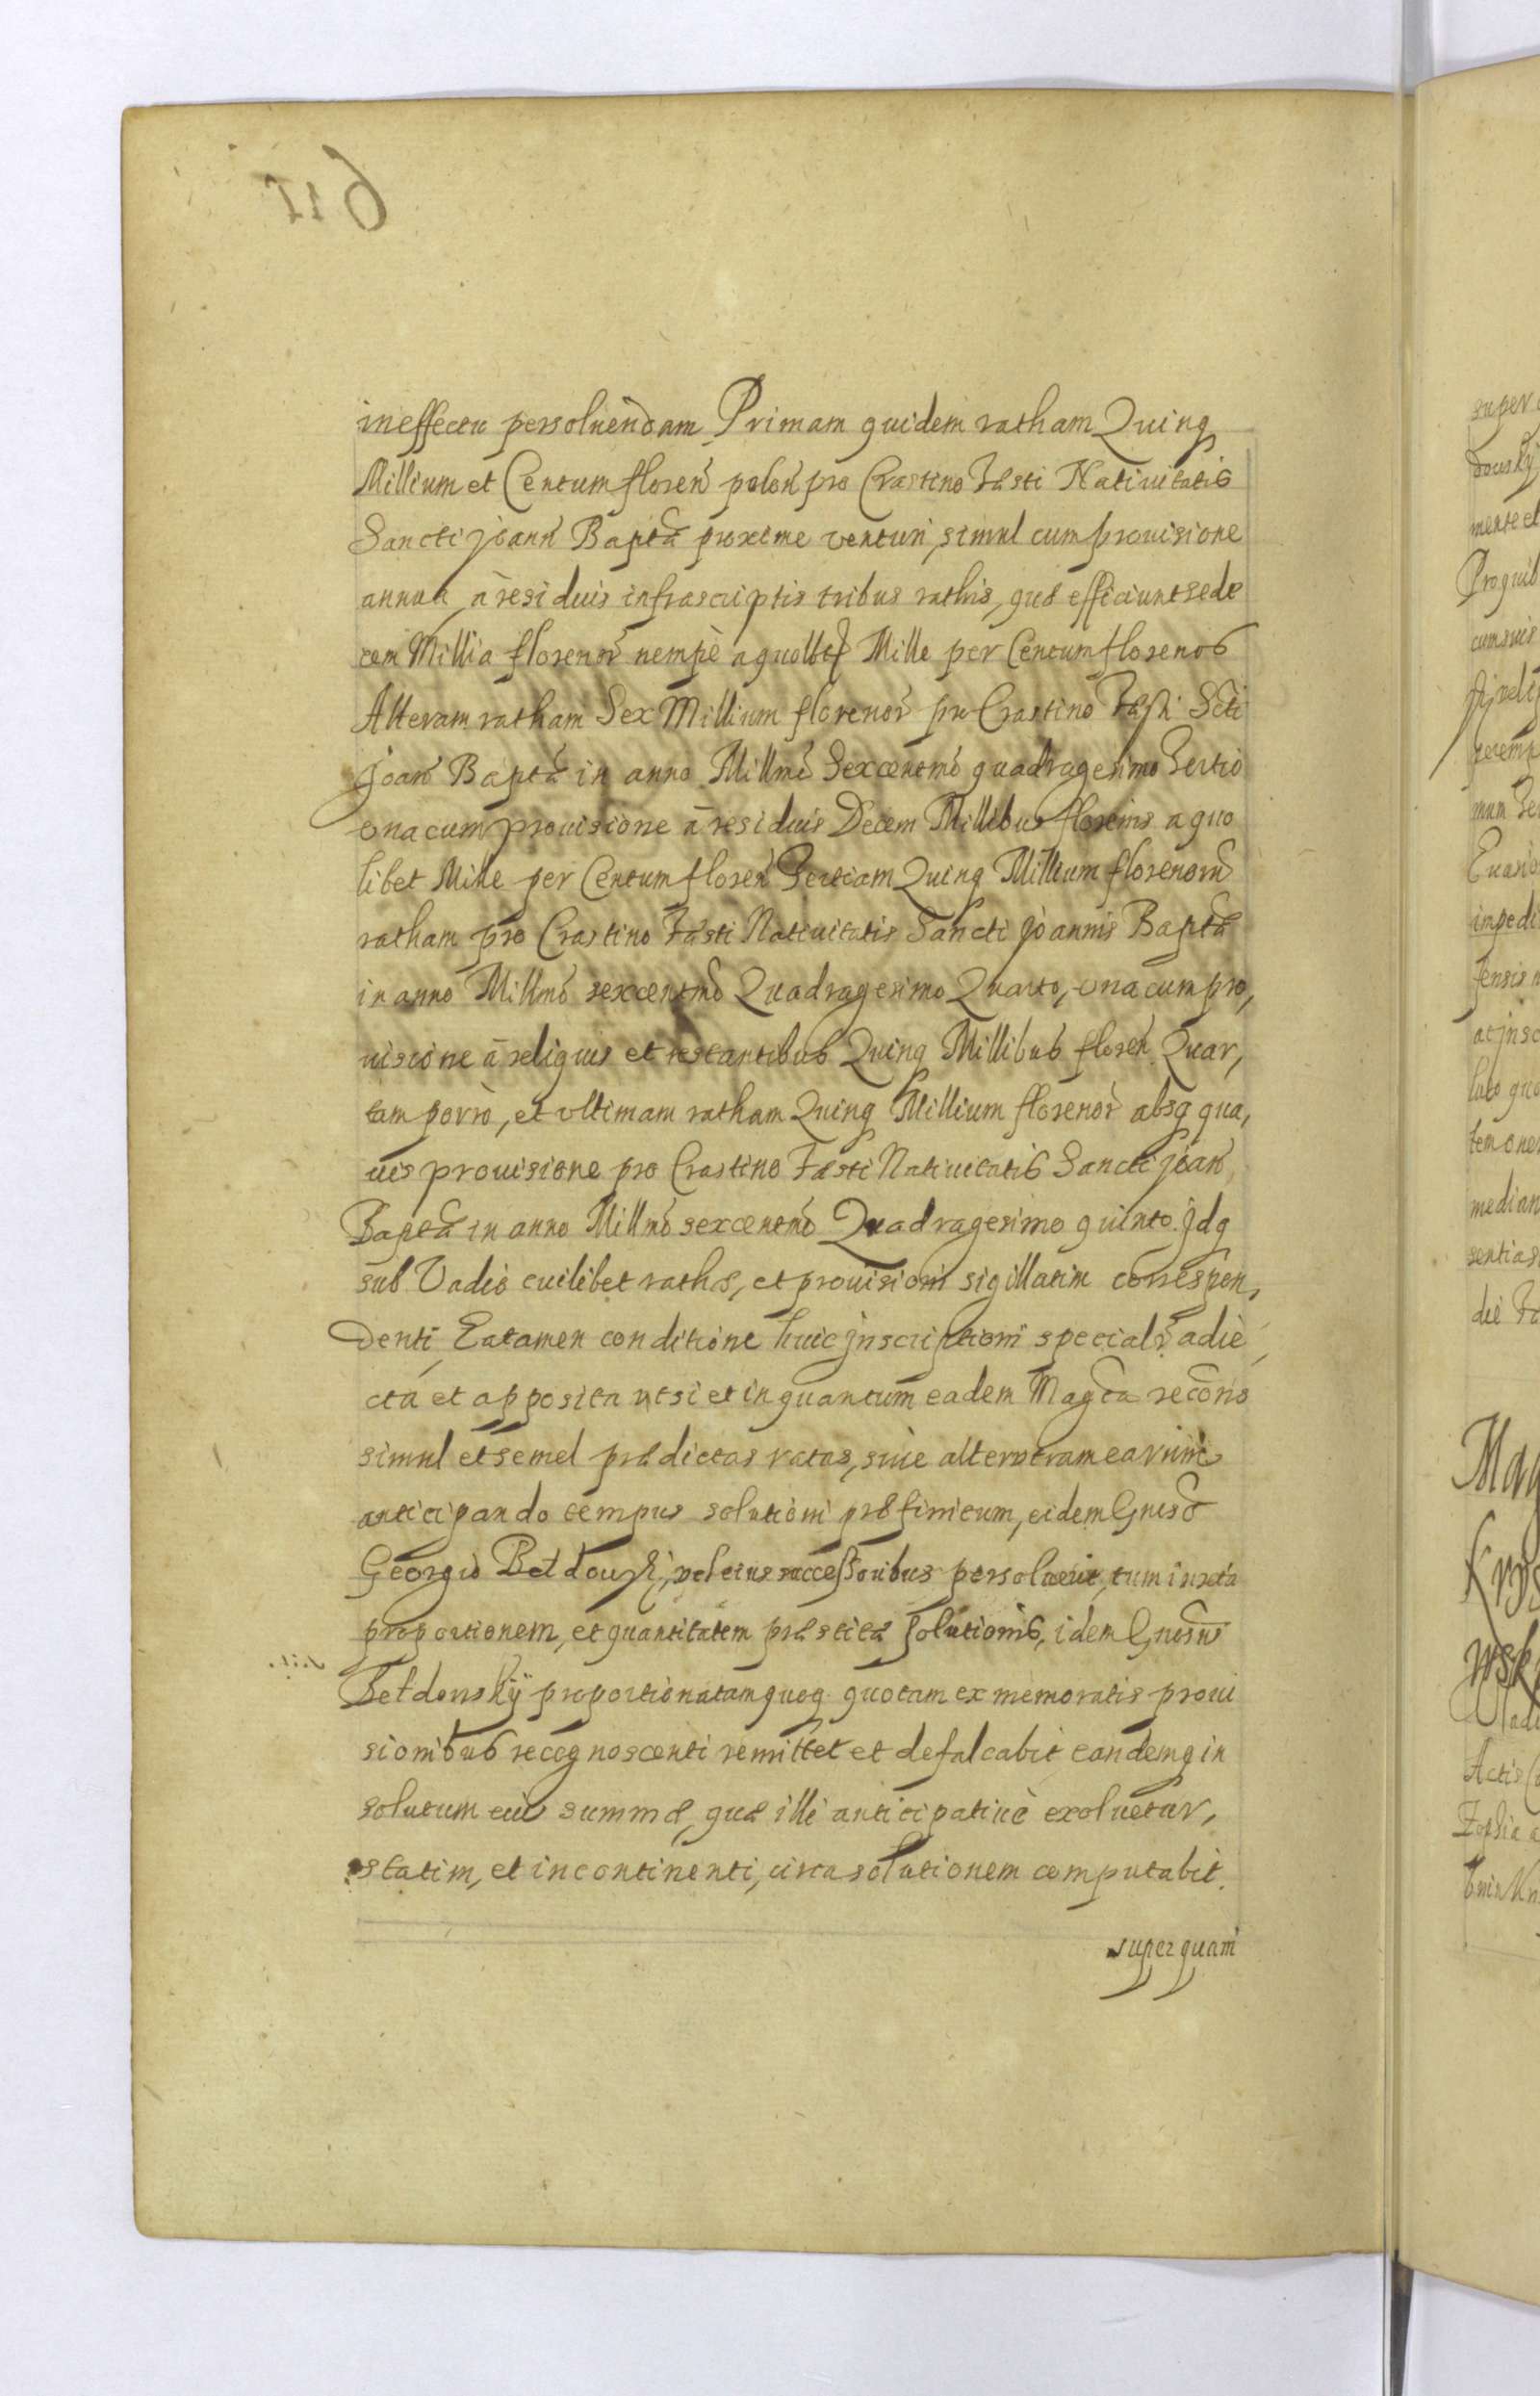 in effectu persoluendam Primam quidem ratham Quinq
Millium et Centum floren̄ polon̄ pro Crastino Fæsti Natiuitatis
Sancti Joann̄ Baptæ proxime venturi, simul cum prouisione
annua, à residuis infrascriptis tribus rathis, quæ efficiunt sede
cem Millia florenor̄ nempè a quolibet Mille per Centum florenos
Alteram ratham Sex Millium florenor̄ pro Crastino Fæsti Scti
Joan̄ Baptæ in anno Millmo Sexcentmo quadragesimo Tertio
vna cum prouisione à residuis Decem Millibus florenis a quo
libet Mille per Centum floren̄ Tertiam Quinq Millium florenorū
ratham pro Crastino Fæsti Natiuitatis Sancti Joannis Baptæ
in anno Millmo sexcentmo Quadragesimo Quarto, vna cum pro,
uisione à reliquis et restantibus Quinq Millibus floren̄ Quar,
tam porrò, et vltimam ratham Quinq Millium florenor̄ absq qua,
uis prouisione pro Crastino Fæsti Natiuitatis Sancti Joan̄
Baptæ in anno Millmo sexcentmo Quadragesimo quinto. Jdq
sub Vadio cuilibet rathæ, et prouisioni sigillatim correspon,
denti Ea tamen conditione huic Jnscriptioni specialr̄ adie
cta et apposita vt si et in quantum eadem Magca recōns
simul et semel prædictas ratas, siue alterutram earum
anticipando tempus solutioni præfinitum, eidem Gneso
Georgio Bełdowski, vel eius successoribus persoluerit, tum iuxta
proportionem, et quantitatem præstitæ solutionis, idem Gnosus
Bełdowskÿ proportionatam quoq quotam ex memoratis proui
sionibus recognoscenti remittet et defalcabit eandemq in
solutum eius summæ, quæ illi anticipatiuè exoluetur,
statim, et incontinenti, circa solutionem computabit.
super quam